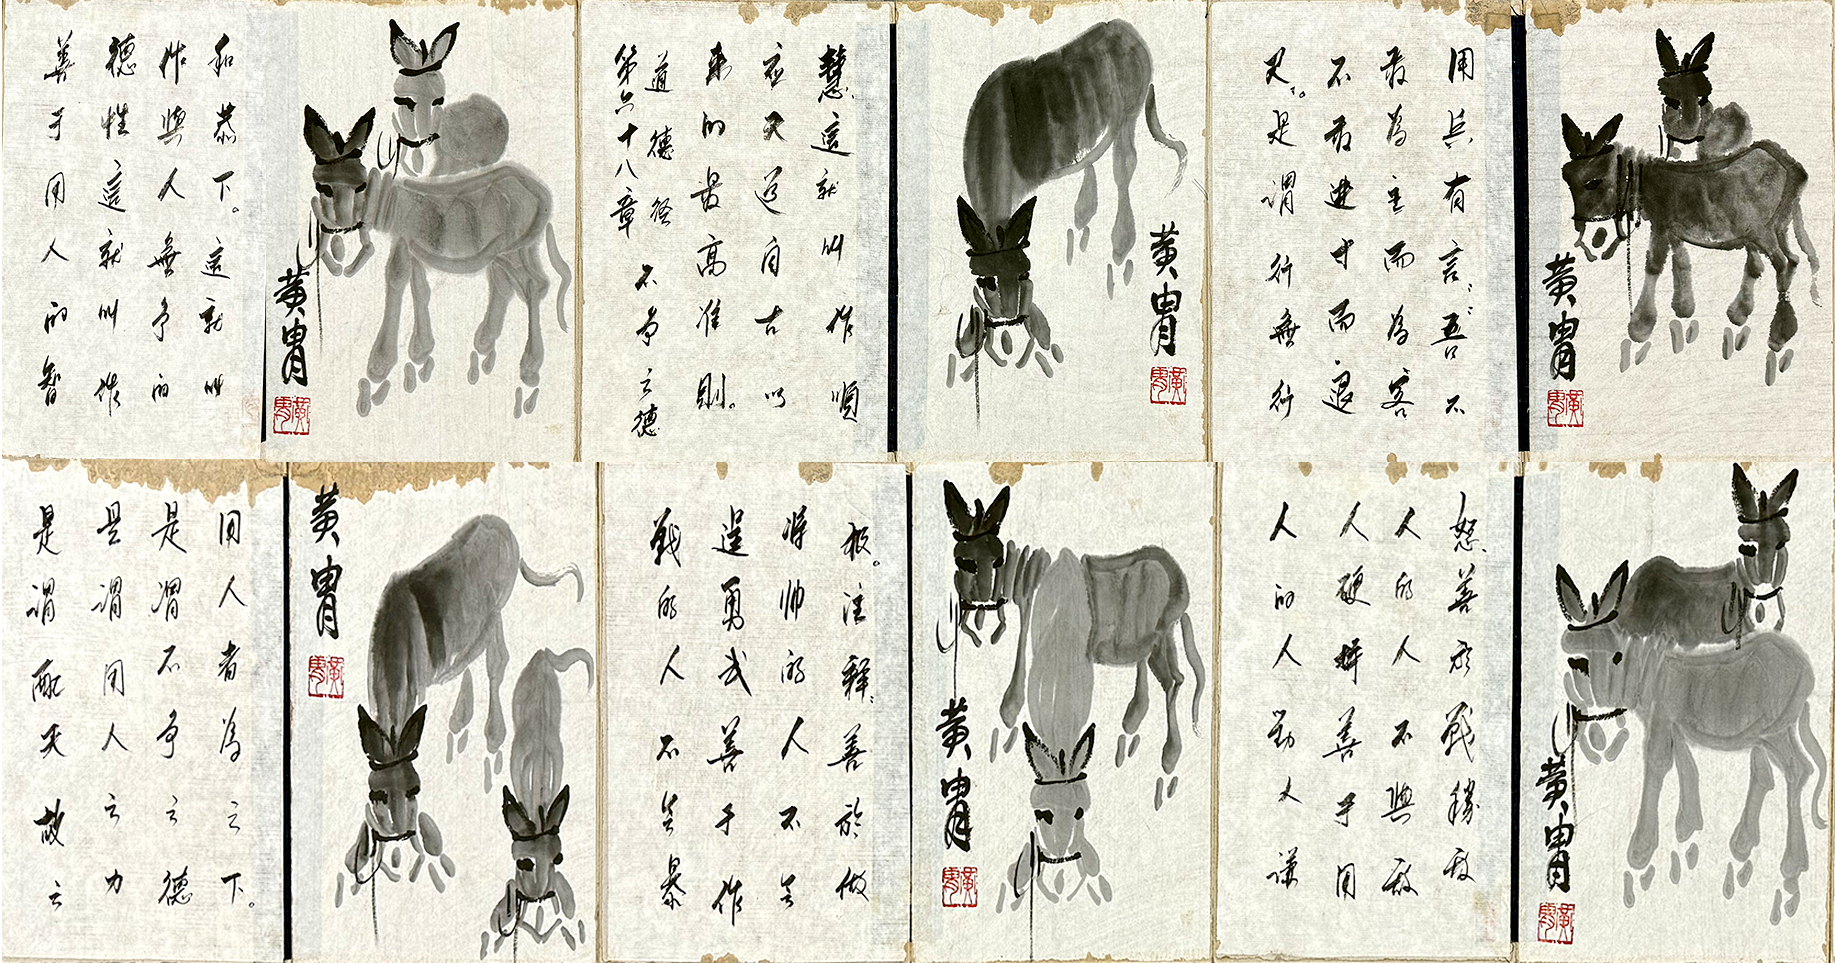 和恭下。這就叫
作與人無争的
德性這就叫作
善于用人的智
黄胄
慧、這就叫作順
应天道自古以
来的最高准則。
道德经 不争之德
第六十八章
黄胄
用兵有言:吾不
敢為主而為客
不敢進寸而退
尺。是謂行無行
黄胄
用人者為之下。
是謂不争之德
是謂用人之力
是謂配天故之
黄胄
极。注释:善於做
将帅的人不会
逞勇武善于作
戰的人不会暴
黄胄
怒、善於戰勝敌
人的人不與敌
人硬拼善于用
人的人勤人谦
黄胄